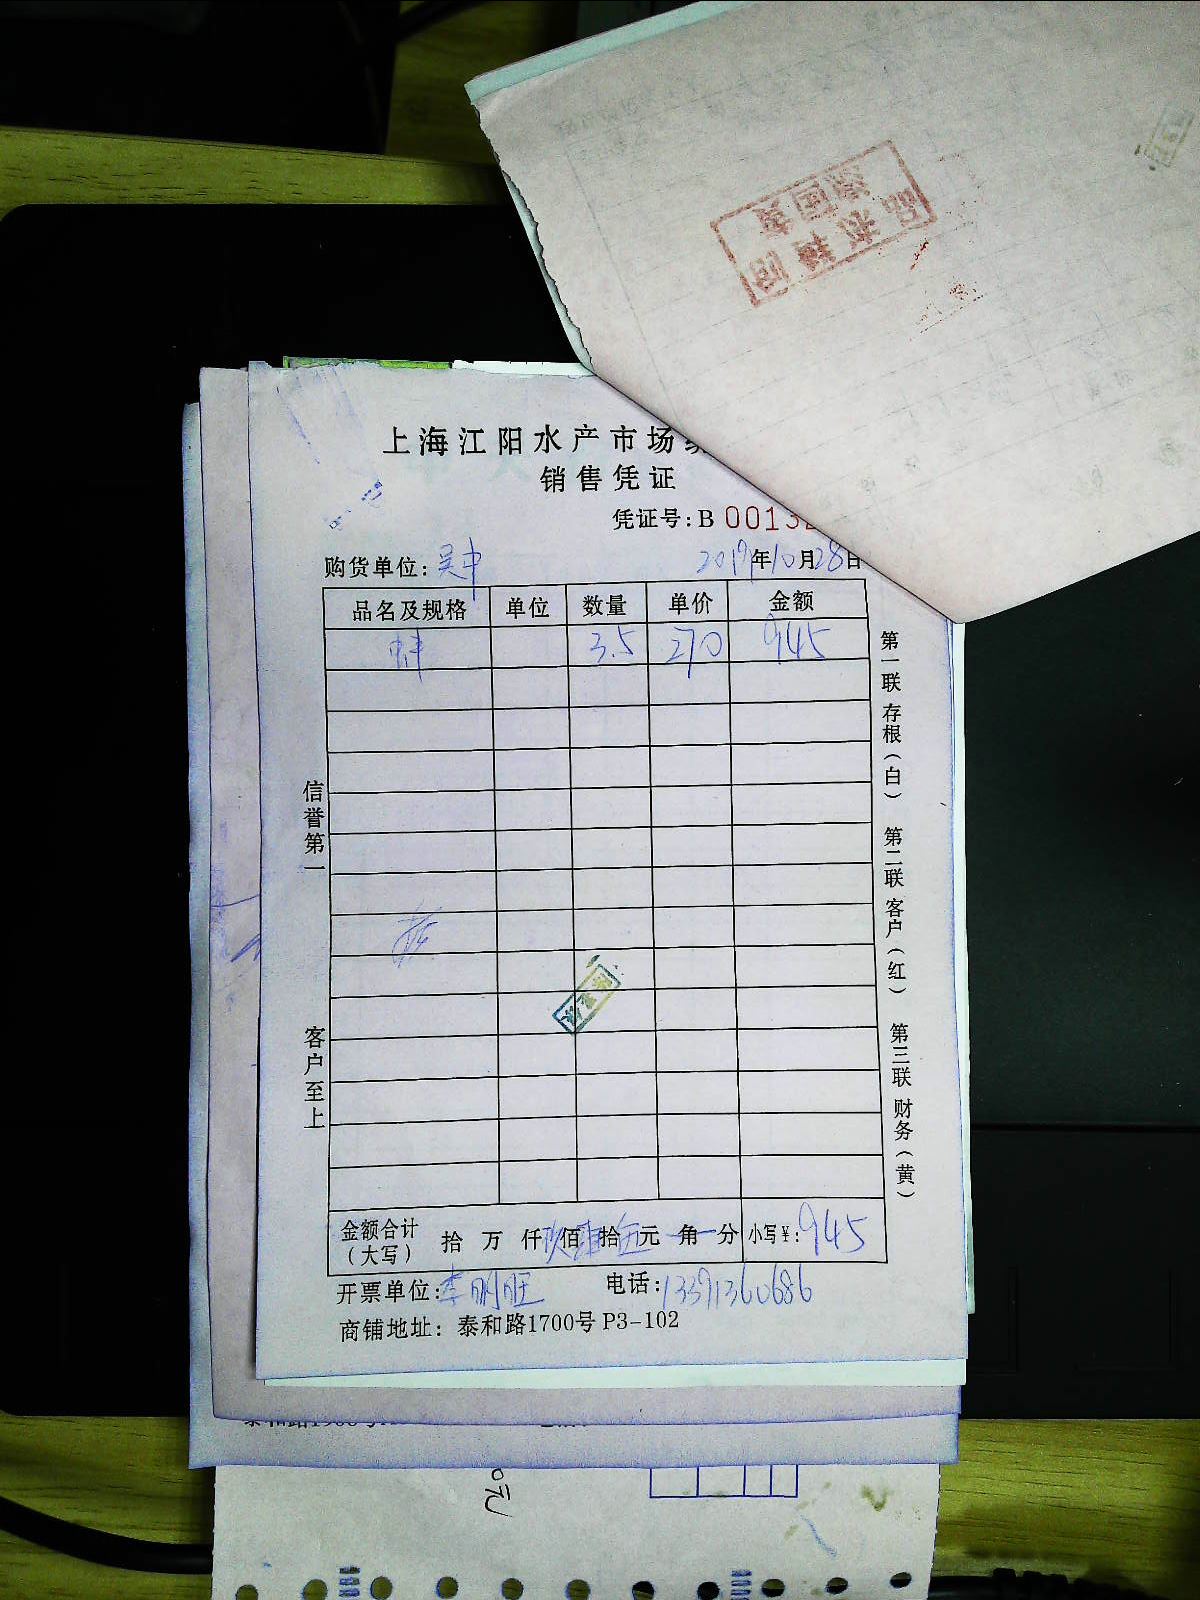 上海江阳水产市场
销售凭证
凭证号:B 0013
购货单位:吴中 2019年10月28日
品名及规格 单位 数量 单价 金额
3.5 270 945
信誉第一
客户至上
第一联 存根(白) 第二联 客户(红) 第三联 财务(黄)
金额合计(大写) 拾 万 仟玖佰肆拾伍元 角 分 小写¥:945
开票单位:李明旺 电话:13391360686
商铺地址: 泰和路1700号 P3-102
0元